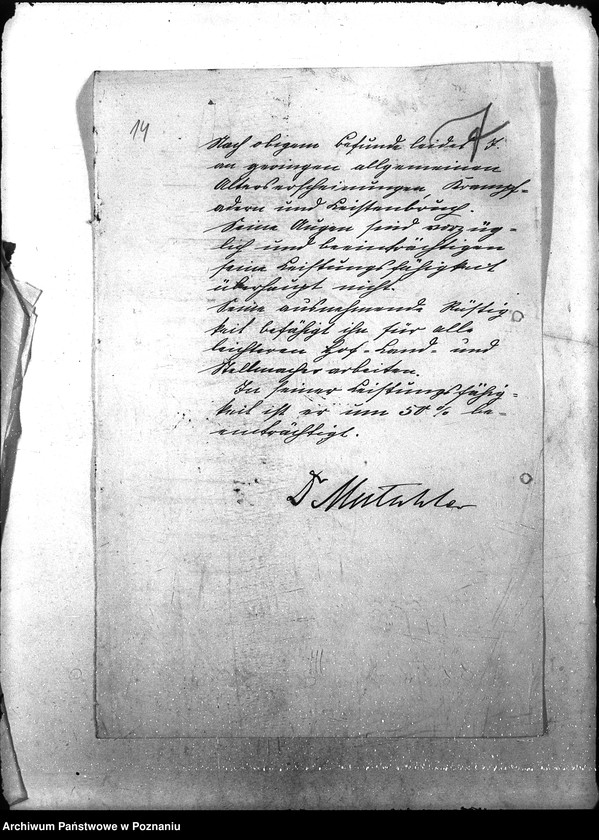 14
Nach obigem Befunde leidet J.
an geringen allgemeinen
Alterserscheinungen, Krampf-
adern und Leistenbruch.
Seine Augen sind vorzüg-
lich und beeinträchtigen
seine Leistungsfähigkeit
überhaupt nicht.
Seine ausnehmende Rüstig
keit befähigt ihn für alle
leichteren Hof-Land- und
Stellmacherarbeiten.
In seiner Leistungsfähig-
keit ist er um 50 % be-
einträchtigt.
Dr
Archiwum Państwowe w Poznaniu